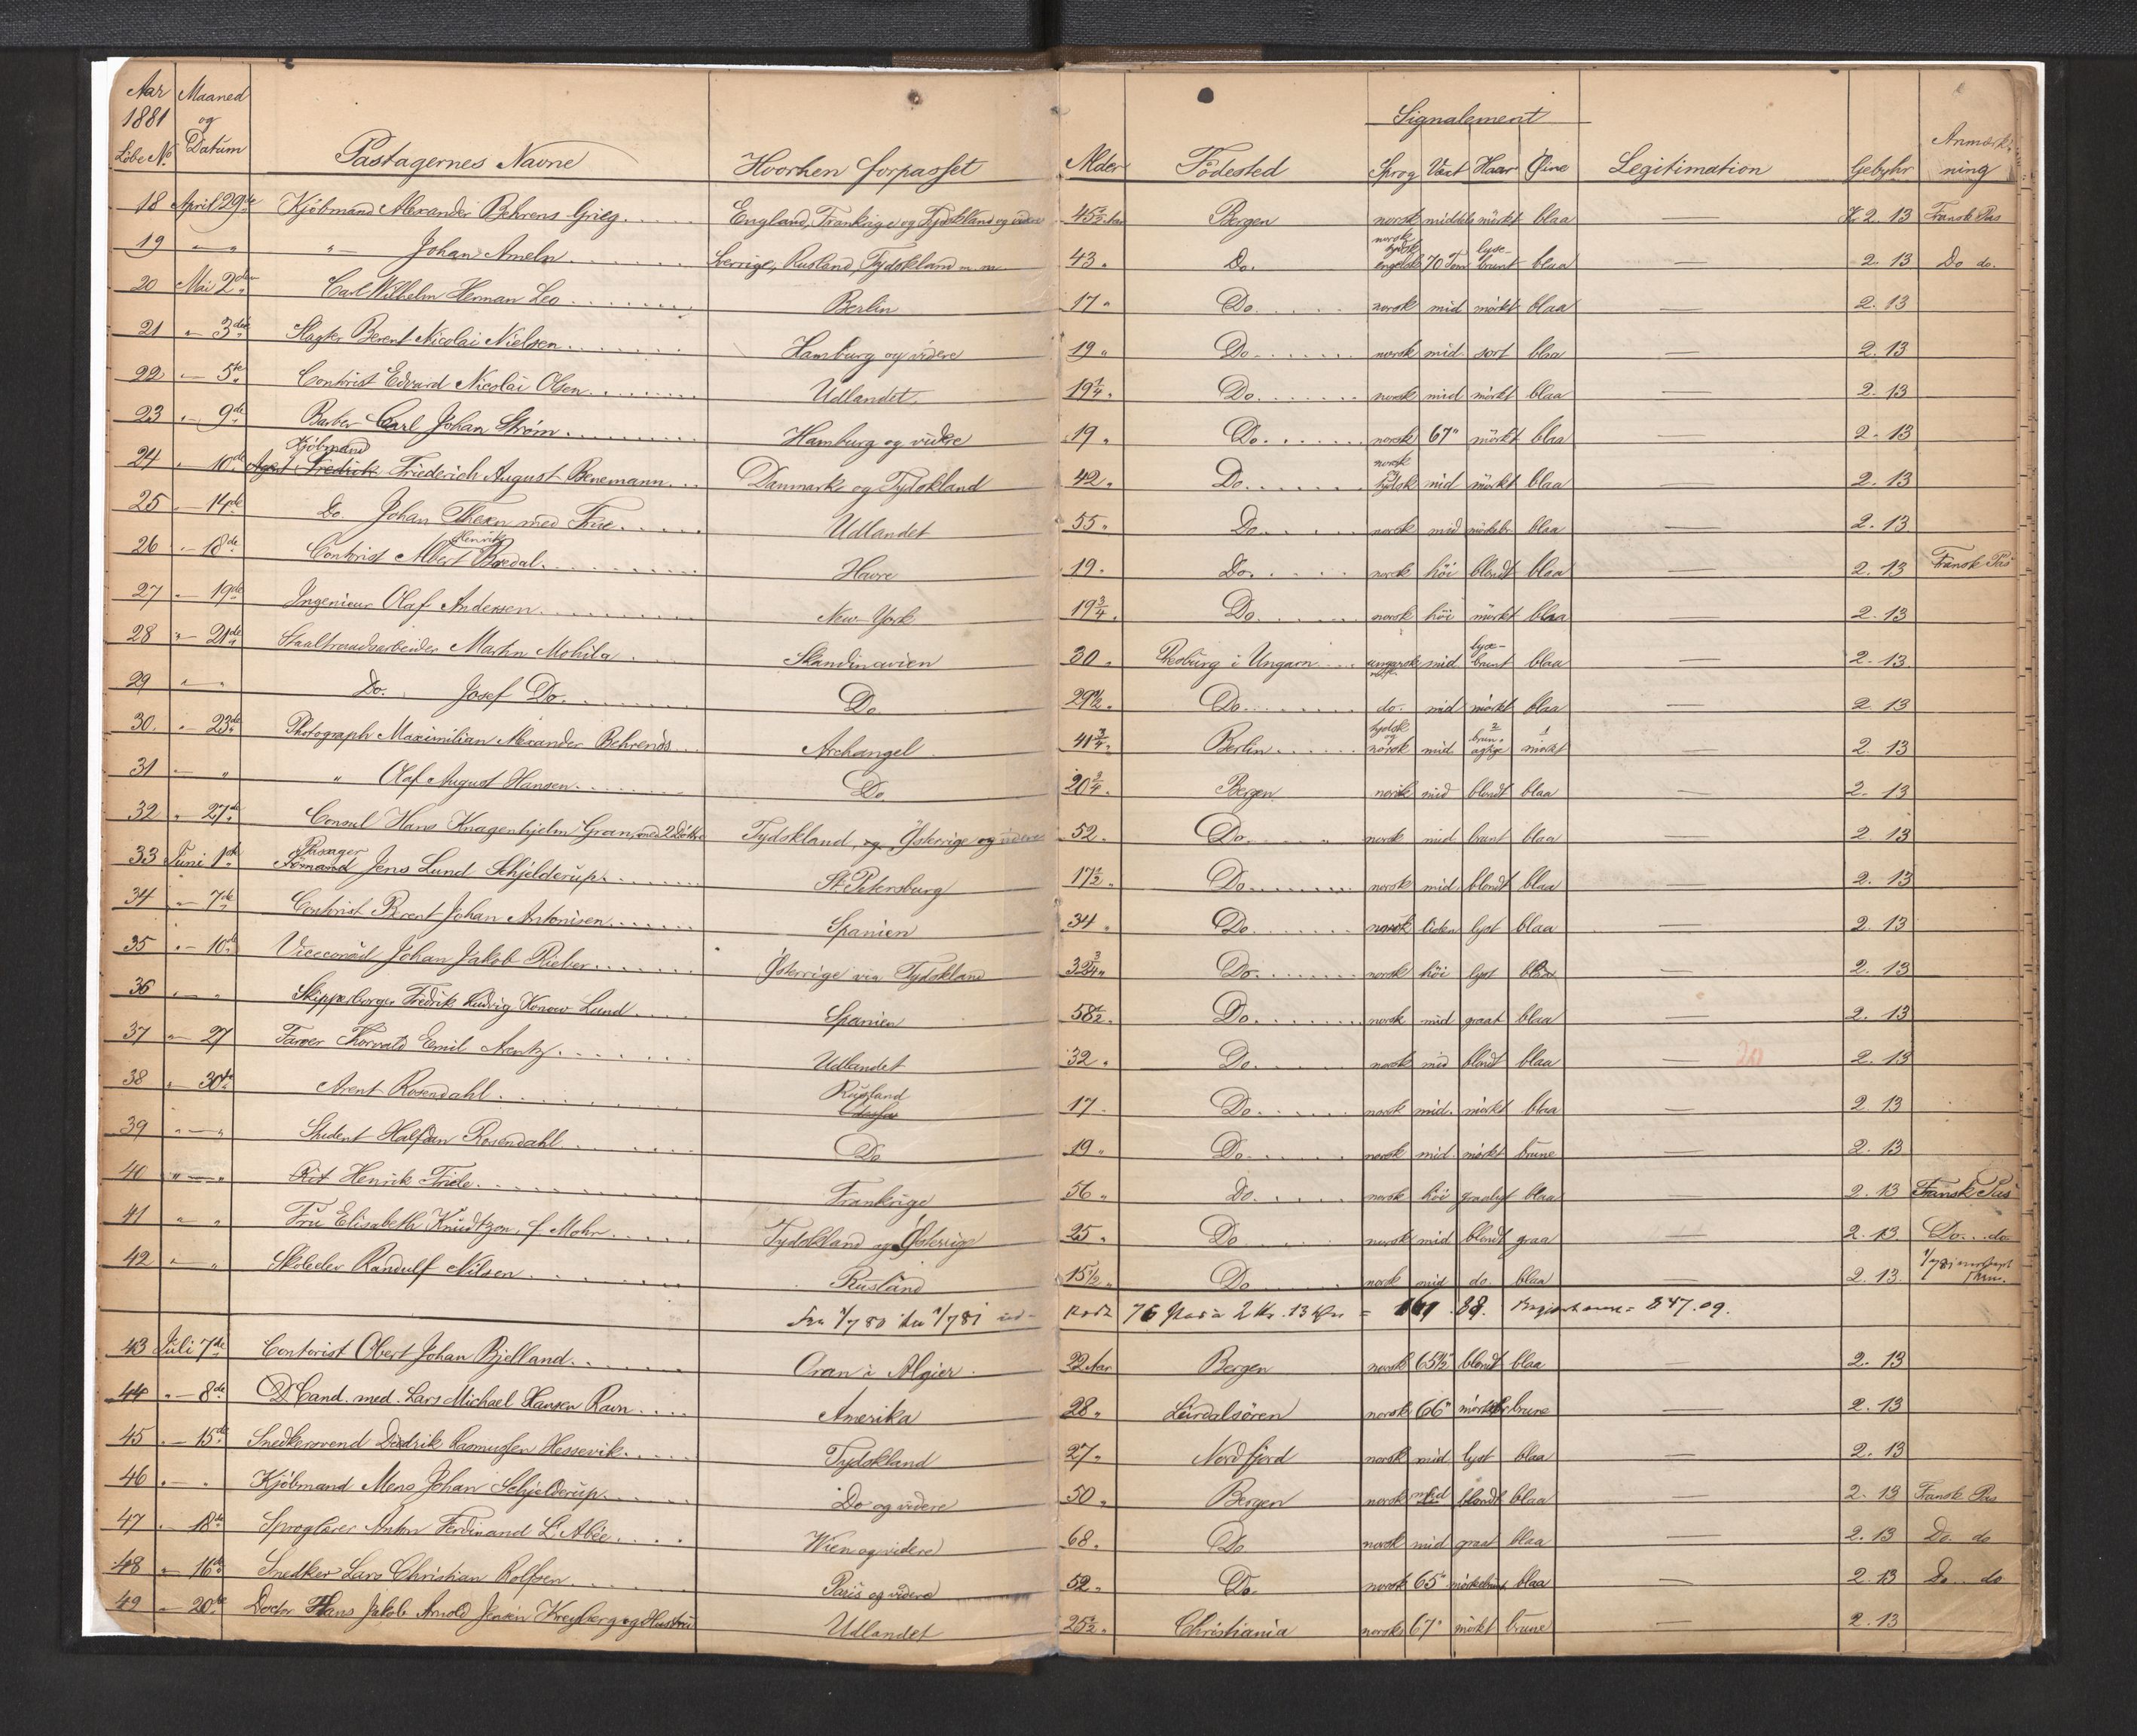 Aar 1881 Maaned og Datum
Signalement
Løbe No. Pastagernes Navne Hvorhen forpasset Alder Födested Sprog Væxt Haar Øine Legitimation Gebyhr Anmærkning
18 April 29de Kjöbmand Alexander Behrens Grieg England, Frankrige og Tydskland og videre 45½ Aar Bergen norsk middels mörkt blaa — Kr 2. 13 Fransk Pas
19 — " " — Johan Ameln Sverrige, Rusland, Tydskland m. m. 43 " Do. norsk tydsk engelsk 70 Tom lyse-brunt blaa — 2. 13 Do do.
20 Mai 2den Carl Wilhelm Herman Leo Berlin 17 " Do norsk mid mörkt blaa — 2. 13
21 " — 3die Slagter Berent Nicolai Nielsen Hamburg og videre 19 " Do norsk mid. sort blaa — 2. 13
22 — 5te Contorist Edvard Nicolai Olsen Udlandet. 19¼ " Do norsk mid mörkt blaa — 2. 13
23 " — 9de Barber Carl Johan Ström Hamburg og videre 19 " Do norsk 67" mörkt blaa — 2. 13
24 " 10de Agent Fredrik Kjöbmand Friederich August Benemann Danmark og Tydskland 42 " Do norsk og tydsk mid mörkt blaa — 2. 13
25 " — 14de Do Johan Thexn med Frue Udlandet 55 " Do norsk mid mörkebr. blaa — 2. 13
26 " — 18de Contorist Albert Henrik Bredal Havre 19 " Do norsk höi blondt blaa — 2. 13 Fransk Pas
27 " — 19de Ingenieur Olaf Andersen New-York 19¾ " Do norsk höi mörkt blaa — 2. 13
28 " — 21de Staaltraadsarbeider Martin Mohila Skandinavien 30 " Presburg i Ungarn ungarsk mid lyse-brunt blaa — 2. 13
29 " — " Do. Josef Do. Do 29½ " Do do. mid mörkt blaa — 2. 13
30. " 23de Photograph Maximilian Alexander Behrends Archangel 41¾ " Berlin tydsk og norsk mid brunagtige mörkt — 2. 13
31 " — " " Olaf August Hansen Do 20¾ " Bergen norsk mid blondt blaa — 2. 13
32 " 27de Consul Hans Knagenhjelm Gran, med 2 Döttre Tydskland, og Østerrige og videre 52 " Do norsk mid brunt blaa — 2. 13
33 Juni 1ste Sömand Passager Jens Lund Schjelderup St Petersburg 17½ " Do norsk mid. blondt blaa — 2. 13
34 " — 7de Contorist Berent Johan Antonisen Spanien 34 " Do norsk liden lyst blaa — 2. 13
35 " — 10de Viceconsul Johan Jakob Rieber Østerrige via Tydskland 32¾ " Do norsk höi lyst blaa — 2. 13
36 " — " Skipperborger Fredrik Ludvig Konow Lund Spanien 58½ " Do norsk mid graat blaa — 2. 13
37 " — 27 Farver Thorvald Emil Arentz Udlandet 32 " Do norsk mid blondt blaa — 20 2. 13
38 " — 30te Arent Rosendahl Rusland Odessa 17 Do norsk mid. mörkt blaa — 2. 13
39 " — " Student Halfdan Rosendahl Do 19 " Do norsk mid. mörkt brune — 2. 13
40 " — " Henrik Friele Frankrige 56 " Do norsk höi graalyst blaa — 2. 13 Fransk Pas
41 " — " Fru Elisabeth Knudtzon, f. Mohr Tydskland og Østerrige 25 " Do norsk mid blondt graa — 2. 13 Do do
42 " — " Skoleelev Randulf Nilsen Rusland 15½ " Do norsk mid do. blaa — 2. 13.
Fra 1/7 80 til 1/7 81 76 Pas a 2 Kr. 13 Øre = 161 . 88. = 847.09.
43 Juli 7de Contorist Olbert Johan Bjelland Oran i Algier 22 Aar Bergen norsk 65½" blondt blaa — 2. 13
44 " — 8de Cand. med. Lars Michael Hansen Ravn Amerika 28 " Leirdalsören norsk 66" mörkebr brune — 2. 13
45 " — 15de Snedkersvend Diedrik Rasmussen Hessevik Tydskland 27 " Nordfjord norsk mid lyst blaa — 2. 13
46 " — " Kjöbmand Mens Johan Schjelderup Do og videre 50 " Bergen norsk mid blondt blaa — 2. 13 Fransk Pas
47 " — 18de Sproglærer Anton Ferdinand L'Abée Wien og videre 68 " Do norsk mid graat blaa — 2. 13 Do. do
48 " — 16de Snedker Lars Christian Rolfsen Paris og videre 52 " Do norsk 65" mörkebrunt blaa — 2. 13 Do do
49 " — 20de Doctor Hans Jakob Arnold Jensen Kreyberg og Hustru Udlandet 25½ " Christiania norsk 67" mörkt brune — 2. 13